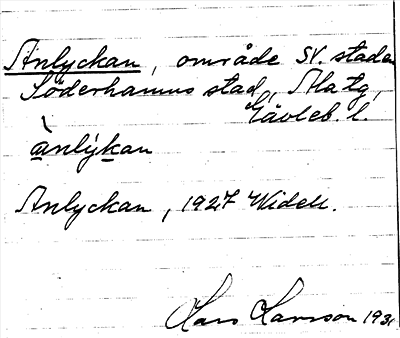 Änlyckan, område SV. staden
Söderhamns stad, Ala tg,
Gävleb. l.
ànlỳkan
Änlyckan, 1927 Widell.
Lars Larsson 193